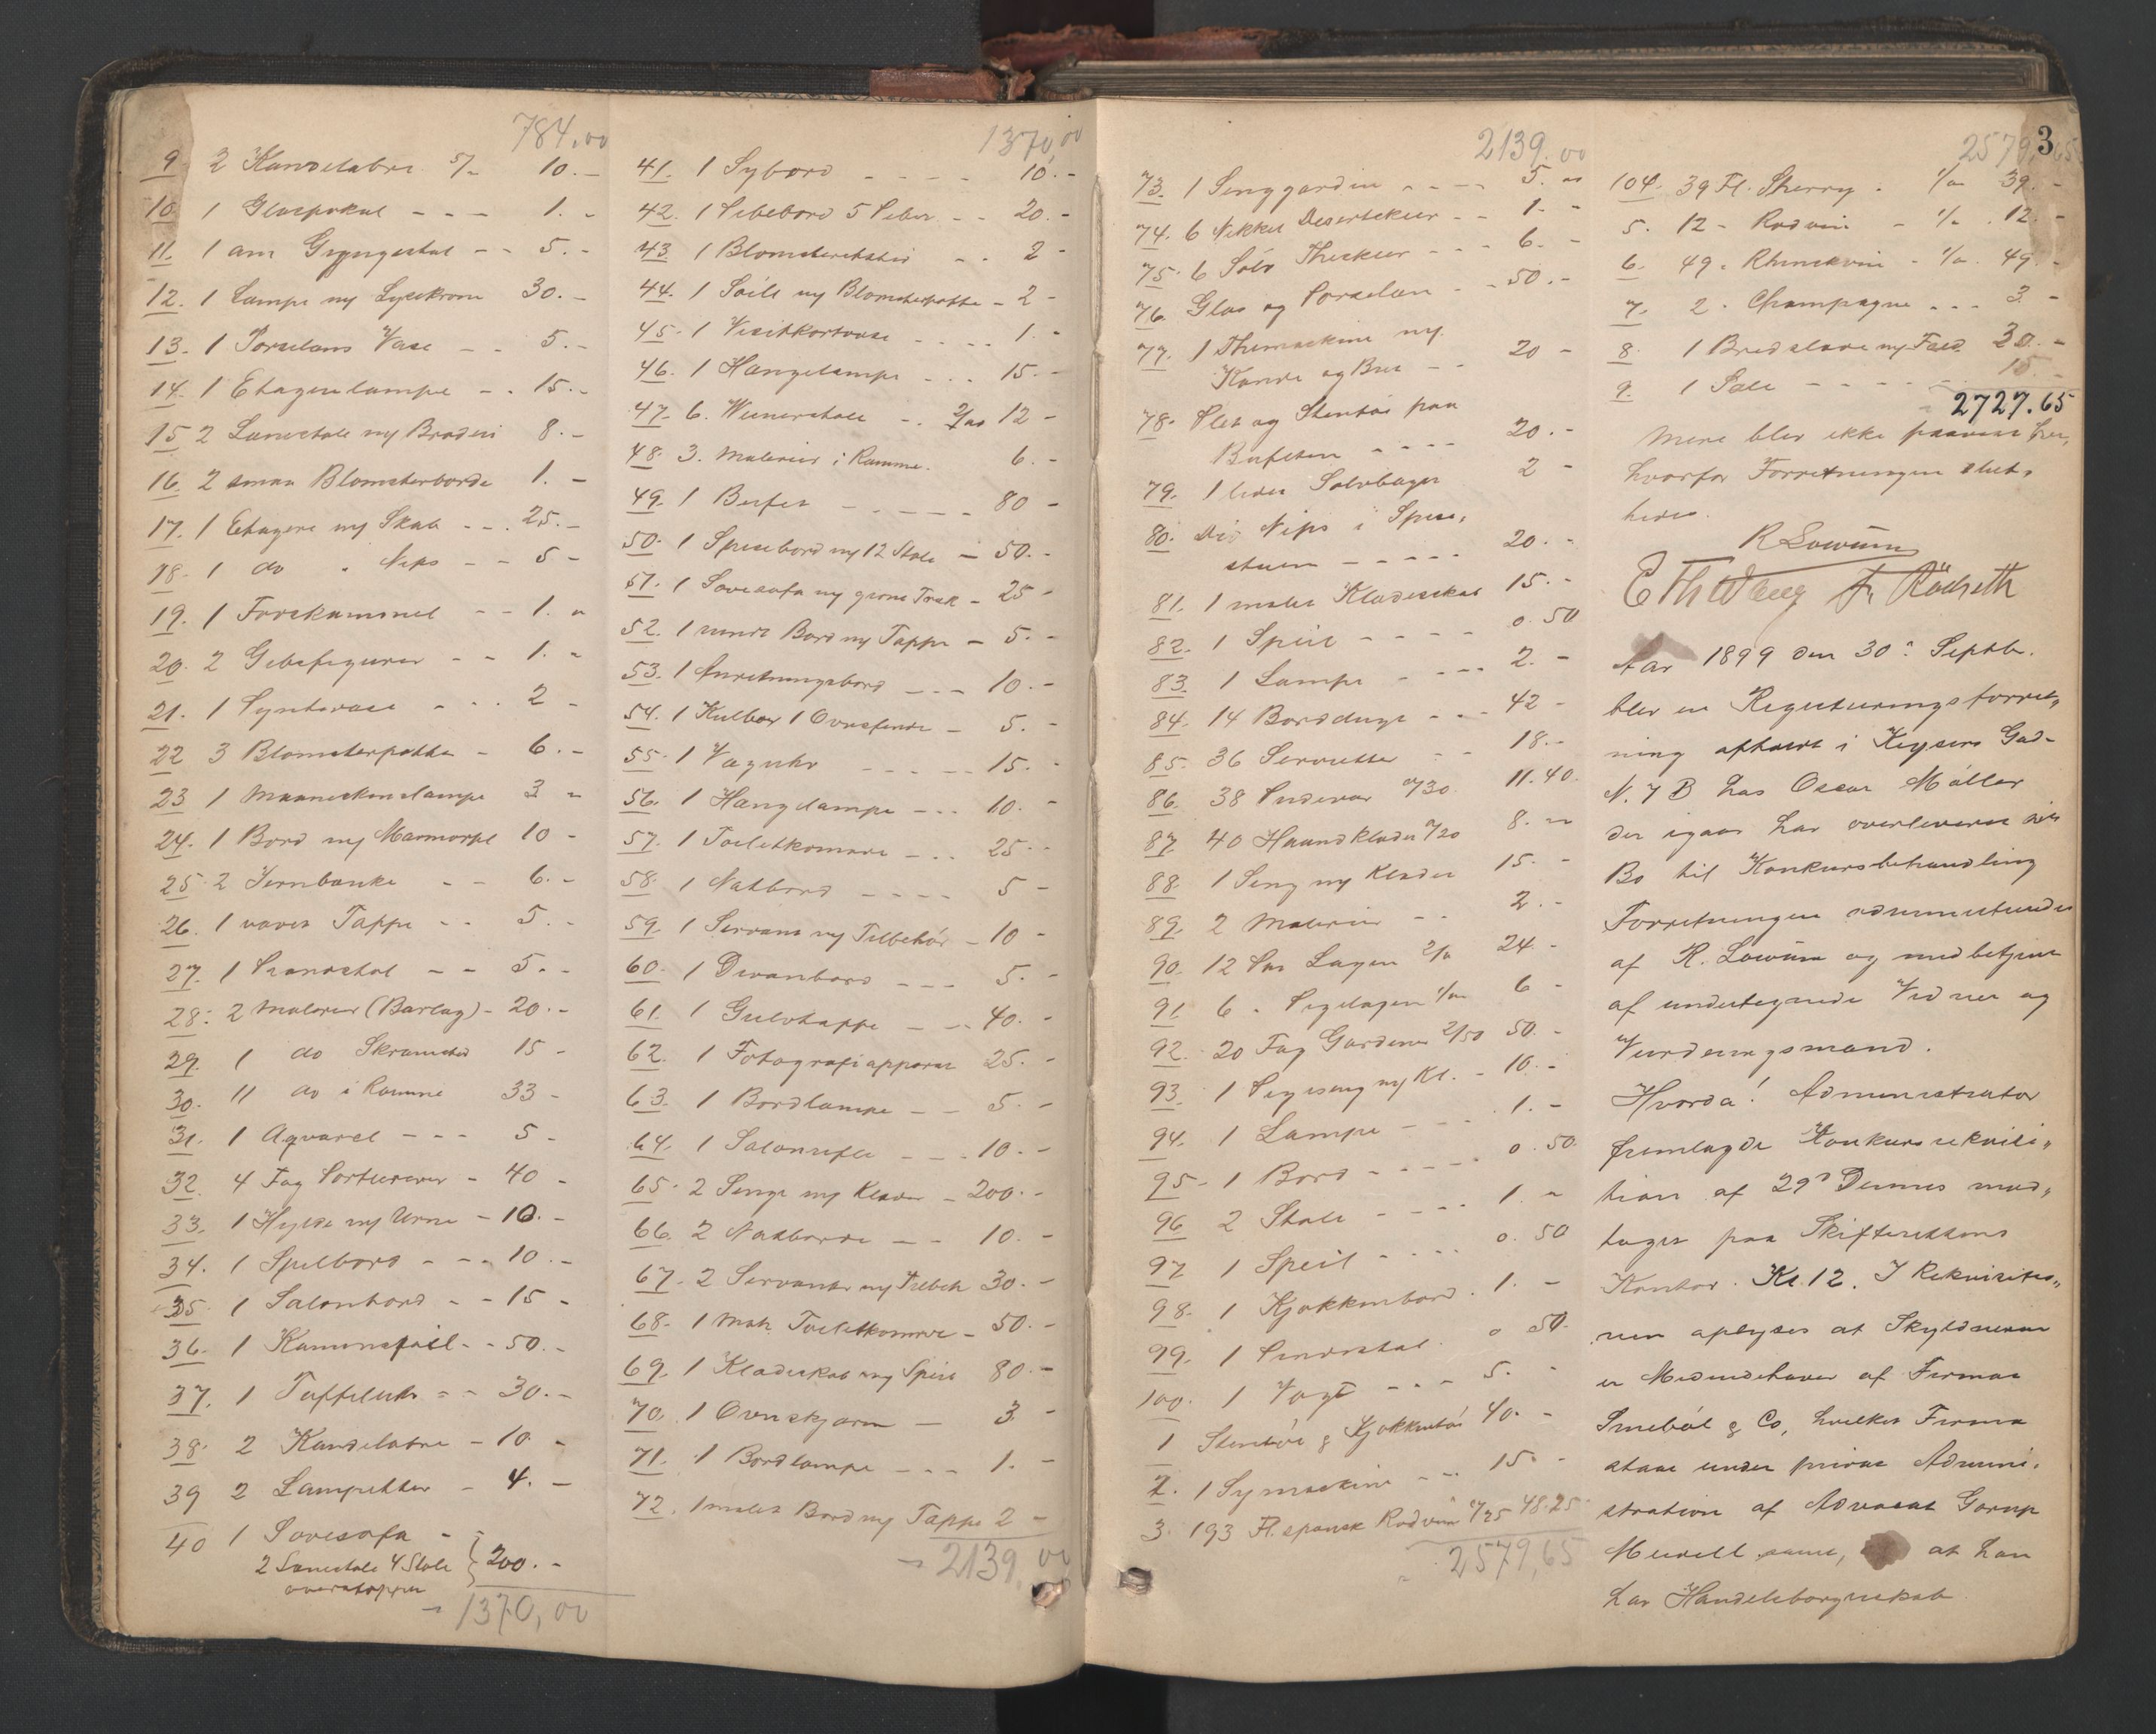 784,00
9. 2 Kandelabre 5/- 10.-
10. 1 Glaspokal - - - 1.-
11. 1 am Gyngestol - - 5.-
12. 1 Lampe m/ Lysekrone 30.-
13. 1 Porselæns Vase - - 5.-
14. 1 Etagerelampe - - 15.-
15 2 Lænestole m/ Broderi 8.-
16. 2 smaa Blomsterborde 1.-
17. 1 Etagere m/ Skab - - - 25.-
18. 1 do " Nips - - 5-
19. 1 Torskammel - - 1.-
20. 2 Gibsfigurer - - 1.-
21. 1 Pyntevase - - - 2-
22 3 Blomsterpotter - 6.-
23 1 Maaneskinslampe 3-
24. 1 Bord m/ Marmorpl 10-
25. 2 Jernbænke - - 6.-
26. 1 vævet Tæppe - - 5.-
27. 1 Pianostol - - 5.-
28. 2 Malerier (Barlag) - 20.-
29. 1 do Skramstad 15-
30. 11 do i Ramme 33-
31. 1 Aqvarel - - - 5-
32. 4 Fag Portierer - 40-
33. 1 Hylde m/ Urne - 10.-
34. 1 Spilbord - - - 10.-
35. 1 Salonbord - - 15-
36. 1 Kaminspeil - - 50.-
37. 1 Taffeluhr - - 30.-
38. 2 Kandelabre - 10-
39 2 Lampetter - 4.-
40 1 Sovesofa -
2 Lænestole 4 Stole } 200.-
overstoppet
1370,00
1370,00
41. 1 Sybord - - - - 10.-
42. 1 Pibebord 5 Piber - - 20.-
43. 1 Blomsterstativ - - 2-
44. 1 Söile m/ Blomsterpotte - 2-
45. 1 Visitkortvase - - - - 1.-
46. 1 Hængelampe - - - 15.-
47. 6. Wienerstole - - 2/00 12-
48. 3. Malerier i Ramme. 6.-
49. 1 Bufet - - - - - 80-
50. 1 Spisebord m/ 12 Stole - 50.-
51. 1 Sovesofa m/ grønt Træk - 25-
52. 1 rundt Bord m/ Tæppe - 5.-
53. 1 Anretningsbord - - - 10.-
54. 1 Kulbox 1 Ovnsforsæt - 5.-
55. 1 Væguhr - - - - - 15.-
56. 1 Hængelampe - - - 10.-
57. 1 Toiletkomode - - - 25.-
58. 1 Natbord - - - - 5-
59. 1 Servant m/ Tilbehör - 10-
60. 1 Divanbord - - - 5.-
61. 1 Gulvtæppe - - - 40.-
62. 1 Fotografiapparat 25.-
63. 1 Bordlampe - - 5.-
64. 1 Salonrifle - - - 10.-
65. 2 Senge m/ Klæder - 200.-
66. 2 Natborde - - 10.-
67. 2 Servanter m/ Tilbeh 30.-
68. 1 Mah Toiletkomode - 50.-
69. 1 Klædeskab m/ Speil 80.-
70. 1 Ovnskjærm - 3-
71. 1 Bordlampe - - - 1.-
72. 1 malet Bord m/ Tæppe 2-
2139,00
2139.00
73. 1 Senggardin - - - - 5.-
74. 6 Nikkel Desertskeer - - 1.-
75. 6 Sölv Theskeer - - - 6.-
76. Glas og Porselæn - - 50.-
77. 1 Themaskine m/
Kande og Bræt - - 20-
78. Plet og Stentöi paa
Bufeten - - - - 20.-
79. 1 liden Sölvbæger 2-
80. Div Nips i Spise,
stuen - - - - 20.-
81. 1 malet Klædeskab 15.-
82. 1 Speil - - - - 0.50
83. 1 Lampe - - - - 2.-
84. 14 Bordduge - - - 42-
85. 36 Servietter - - 18.-
86. 38 Pudevar a/30. 11.40.
87. 40 Haandklæder a/20 8.-
88. 1 Seng m/ Klæder 15.-
89. 2 Malerier - - 2.-
90. 12 Par Lagen 2/00 24.-
91. 6 - Pigelagen 1/00 6-
92. 20 Fag Gardiner 2/50 50.-
93. 1 Pigeseng m/ Kl. - 10.-
94. 1 Lampe - - - 1.-
95. 1 Bord - - - - - 0.50
96. 2 Stole - - - - 1.-
97 1 Speil - - - - 0.50
98. 1 Kjøkkenbord. 1.-
99. 1 Pindestol. 0 50.
100. 1 Vægt - - - 5.-
1 Stentöi & Kjøkkentöi 40.-
2. 1 Symaskine - - - 15.-
3. 193 Fl. spansk Rødvin a/25 48.25
2579,65
2579,65
3
104. 39 Fl. Sherry - 1/00 39.-
5. 12 - Rødvin - 1/00 12.-
6. 49. Rhinskvin - 1/00 49.-
7. 2. Champagne - - - 3.-
8. 1 Bredslæde m/ Fæld 30.-
9. 1 Sæle - - - - - 15.-
2727.65
Mere blev ikke paavist her,
hvorfor Forretningen slut,
tedes.
R Lowum
E Th Wang Fr. Rödseth
Aar 1899 den 30te Septbr.
blev en Registreringsforret,
ning afholdt i Keysers Gad-
N. 7 B hos Oscar Möller
der igaar har overleveret sit
Bo til Konkursbehandling
Forretningen administreredes
af R. Lowum og medbetjent
af undertegnede Vidner og
Vurderingsmænd.
Hvorda! Administrator
fremlagde Konkursrekvisi,
tion af 29de Dennes mod,
taget paa Skifterettens
Kontor Kl. 12. I Rekvisitio,
nen oplyses at Skyldneren
er Medindehaver af Firmaet
Smebøl & Co, hvilket Firma
staar under privat Admini,
stration af Advocat Gorup
Meidell samt, at han
har Handelsborgerskab